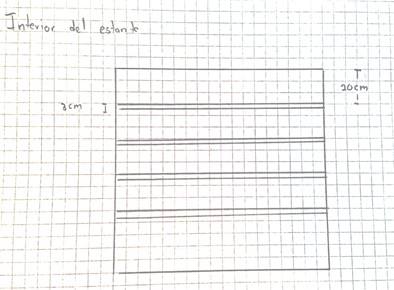 Interior del estante
20cm
3cm